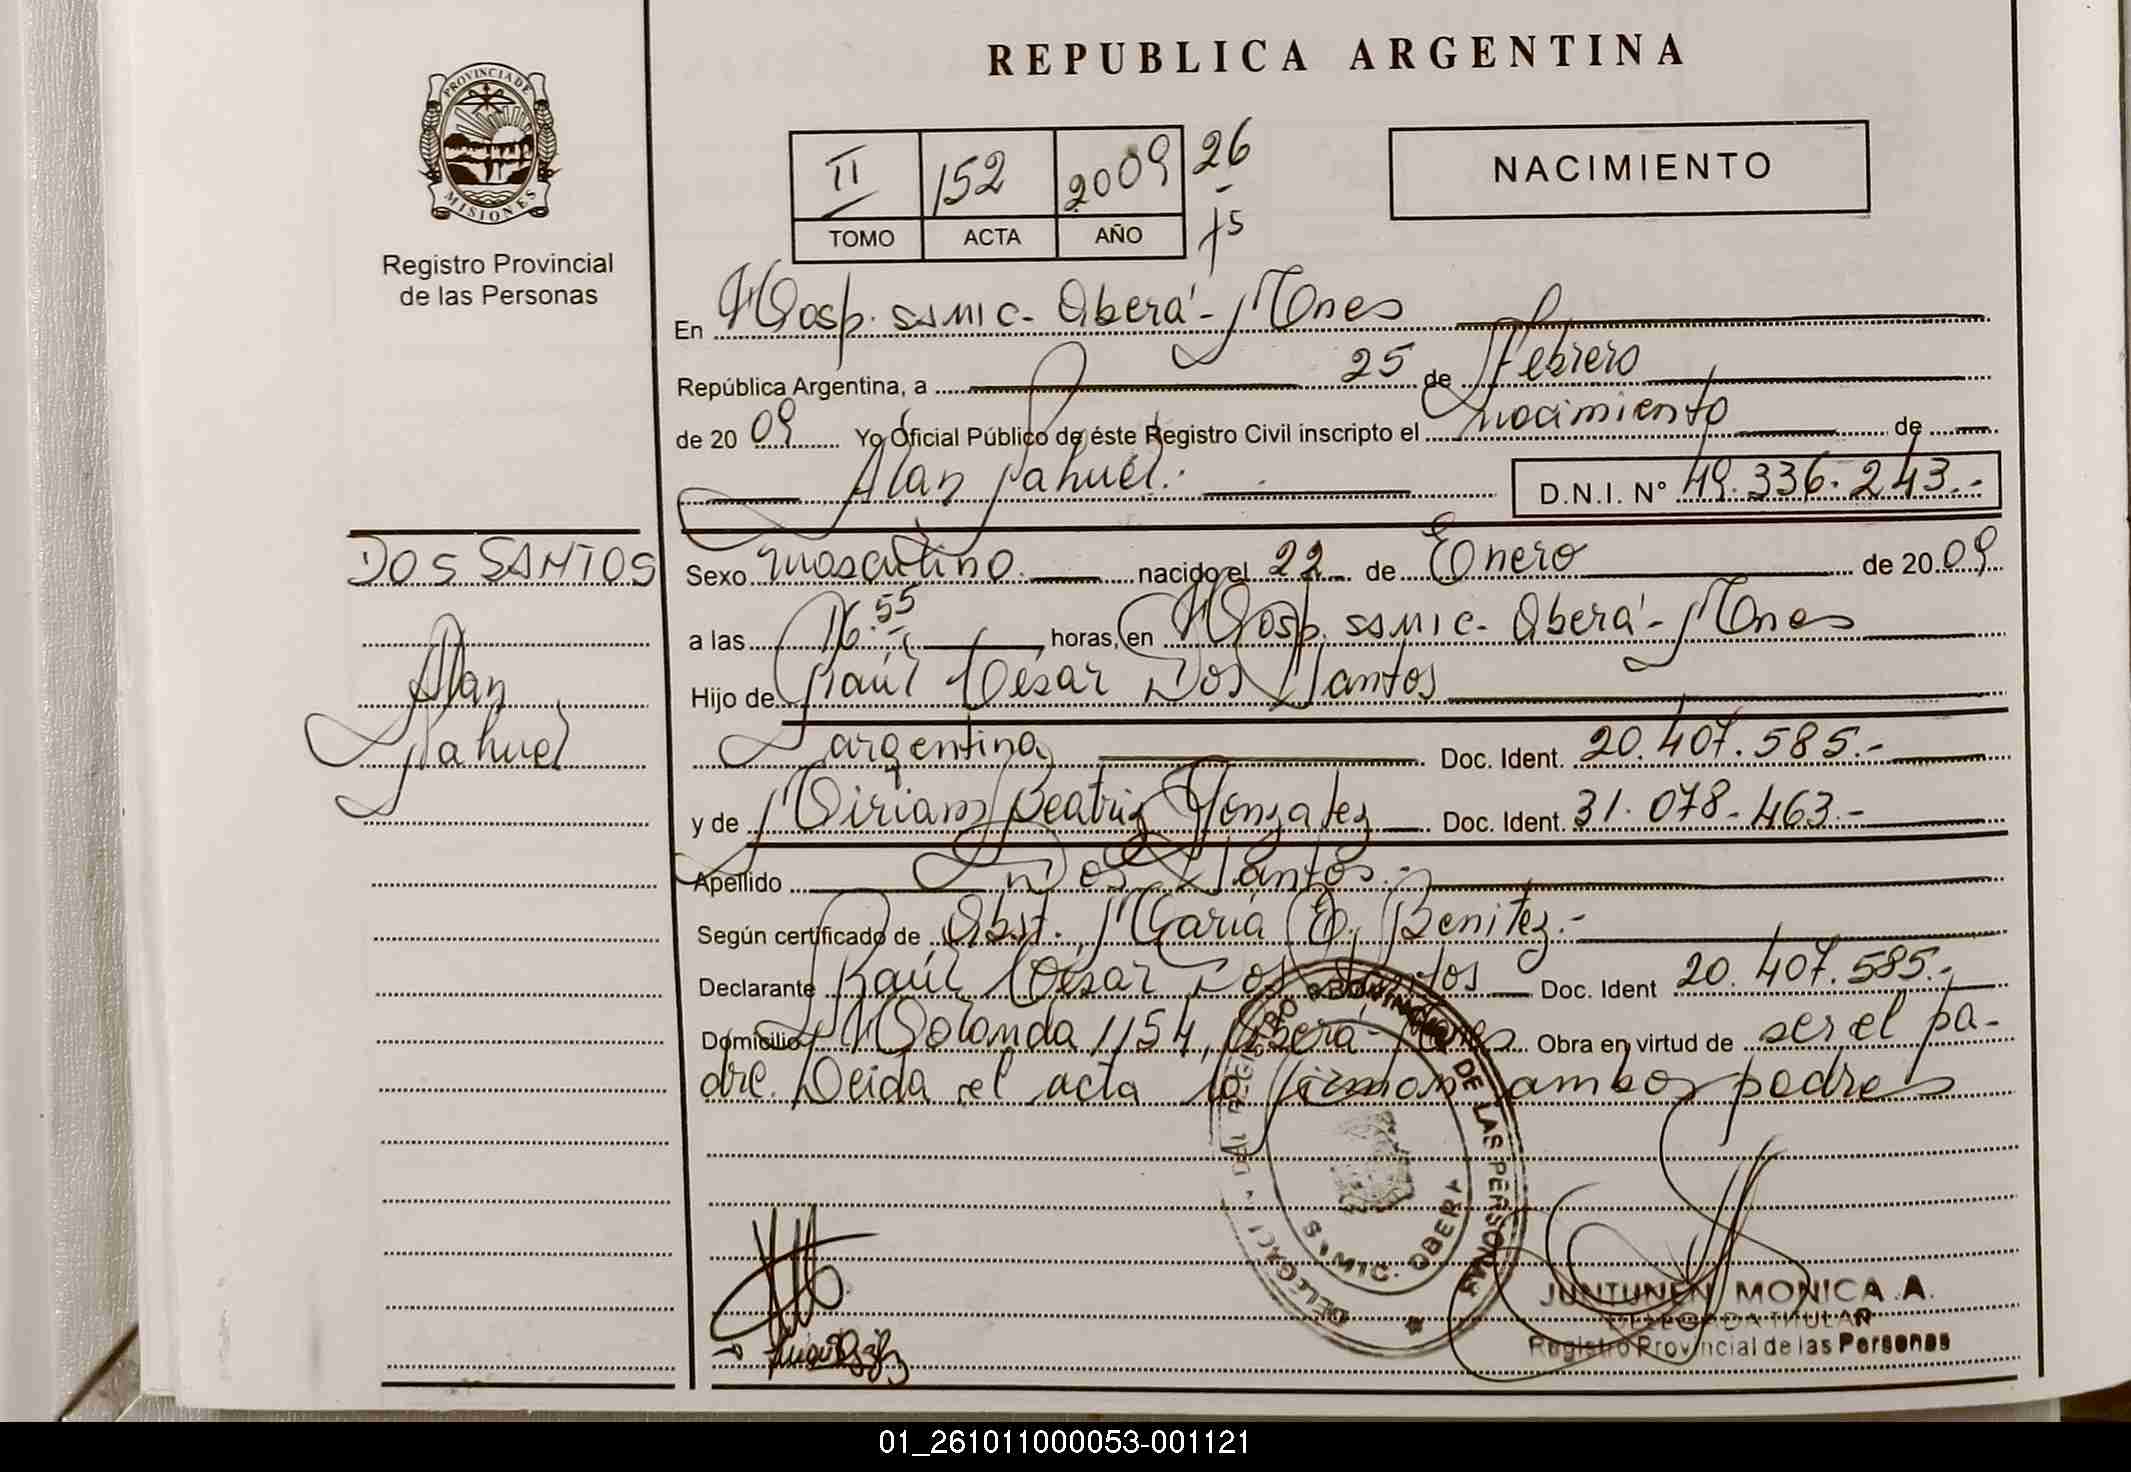 REPUBLICA ARGENTINA
PROVINCIA DE MISIONES
Registro Provincial
de las Personas
II 152 2009 26
TOMO ACTA AÑO 15
NACIMIENTO
En Hosp. SAMIC - Oberá - Mnes
República Argentina, a 25 de Febrero
de 2009 Yo Oficial Público de éste Registro Civil inscripto el nacimiento de
Alan Nahuel.
D.N.I. Nº 49.336.243.-
DOS SANTOS
Alan
Nahuel
Sexo masculino nacido el 22 de Enero de 2009
a las 16.55 horas, en Hosp. SAMIC - Oberá - Mnes
Hijo de Raúl César Dos Santos
argentina Doc. Ident. 20.407.585.-
y de Miriam Beatriz Gonzalez Doc. Ident. 31.078.463.-
Apellido Dos Santos.-
Según certificado de Obst. María E. Benitez.-
Declarante Raúl César Dos Santos Doc. Ident 20.407.585.-
Domicilio Holanda 1154, Oberá - Mnes Obra en virtud de ser el pa-
dre. Leida el acta la firman ambos padres
DELEGACION DEL REGISTRO PROVINCIAL DE LAS PERSONAS
SAMIC. OBERA
JUNTUNEN MONICA A.
DELEGADA TITULAR
Registro Provincial de las Personas
01_261011000053-001121